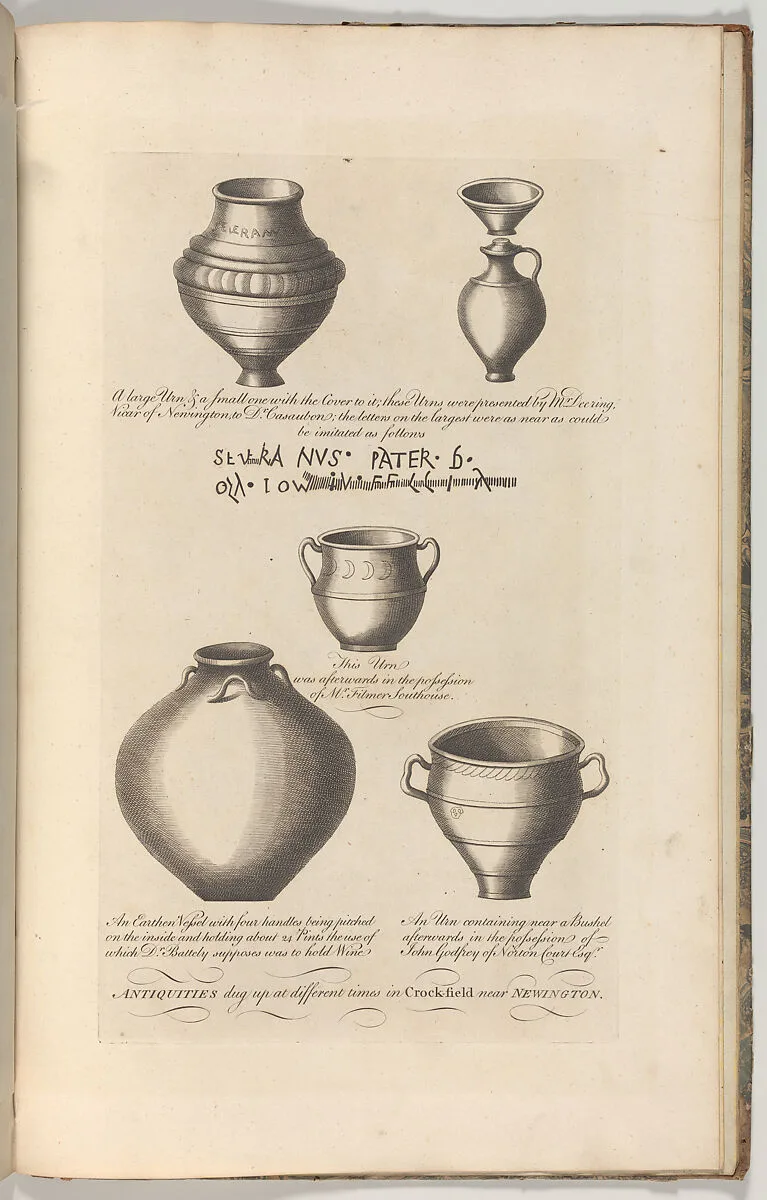 SEVERANV
A large Urn, & a small one with the Cover to it; these Urns were presented by Mr. Deering,
Vicar of Newington, to Dr. Casaubon; the letters on the largest were as near as could
be imitated as follows
SEVERA NVS· PATER· b·
This Urn
was afterwards in the possession
of Mr. Filmer Southouse.
An Earthen Vessel with four handles being pitched
on the inside and holding about 24 Pints the use of
which Dr. Battely supposes was to hold Wine
An Urn containing near a Bushel
afterwards in the possession of
John Godfrey of Norton Court Esqr.
ANTIQUITIES dug up at different times in Crock-field near NEWINGTON.